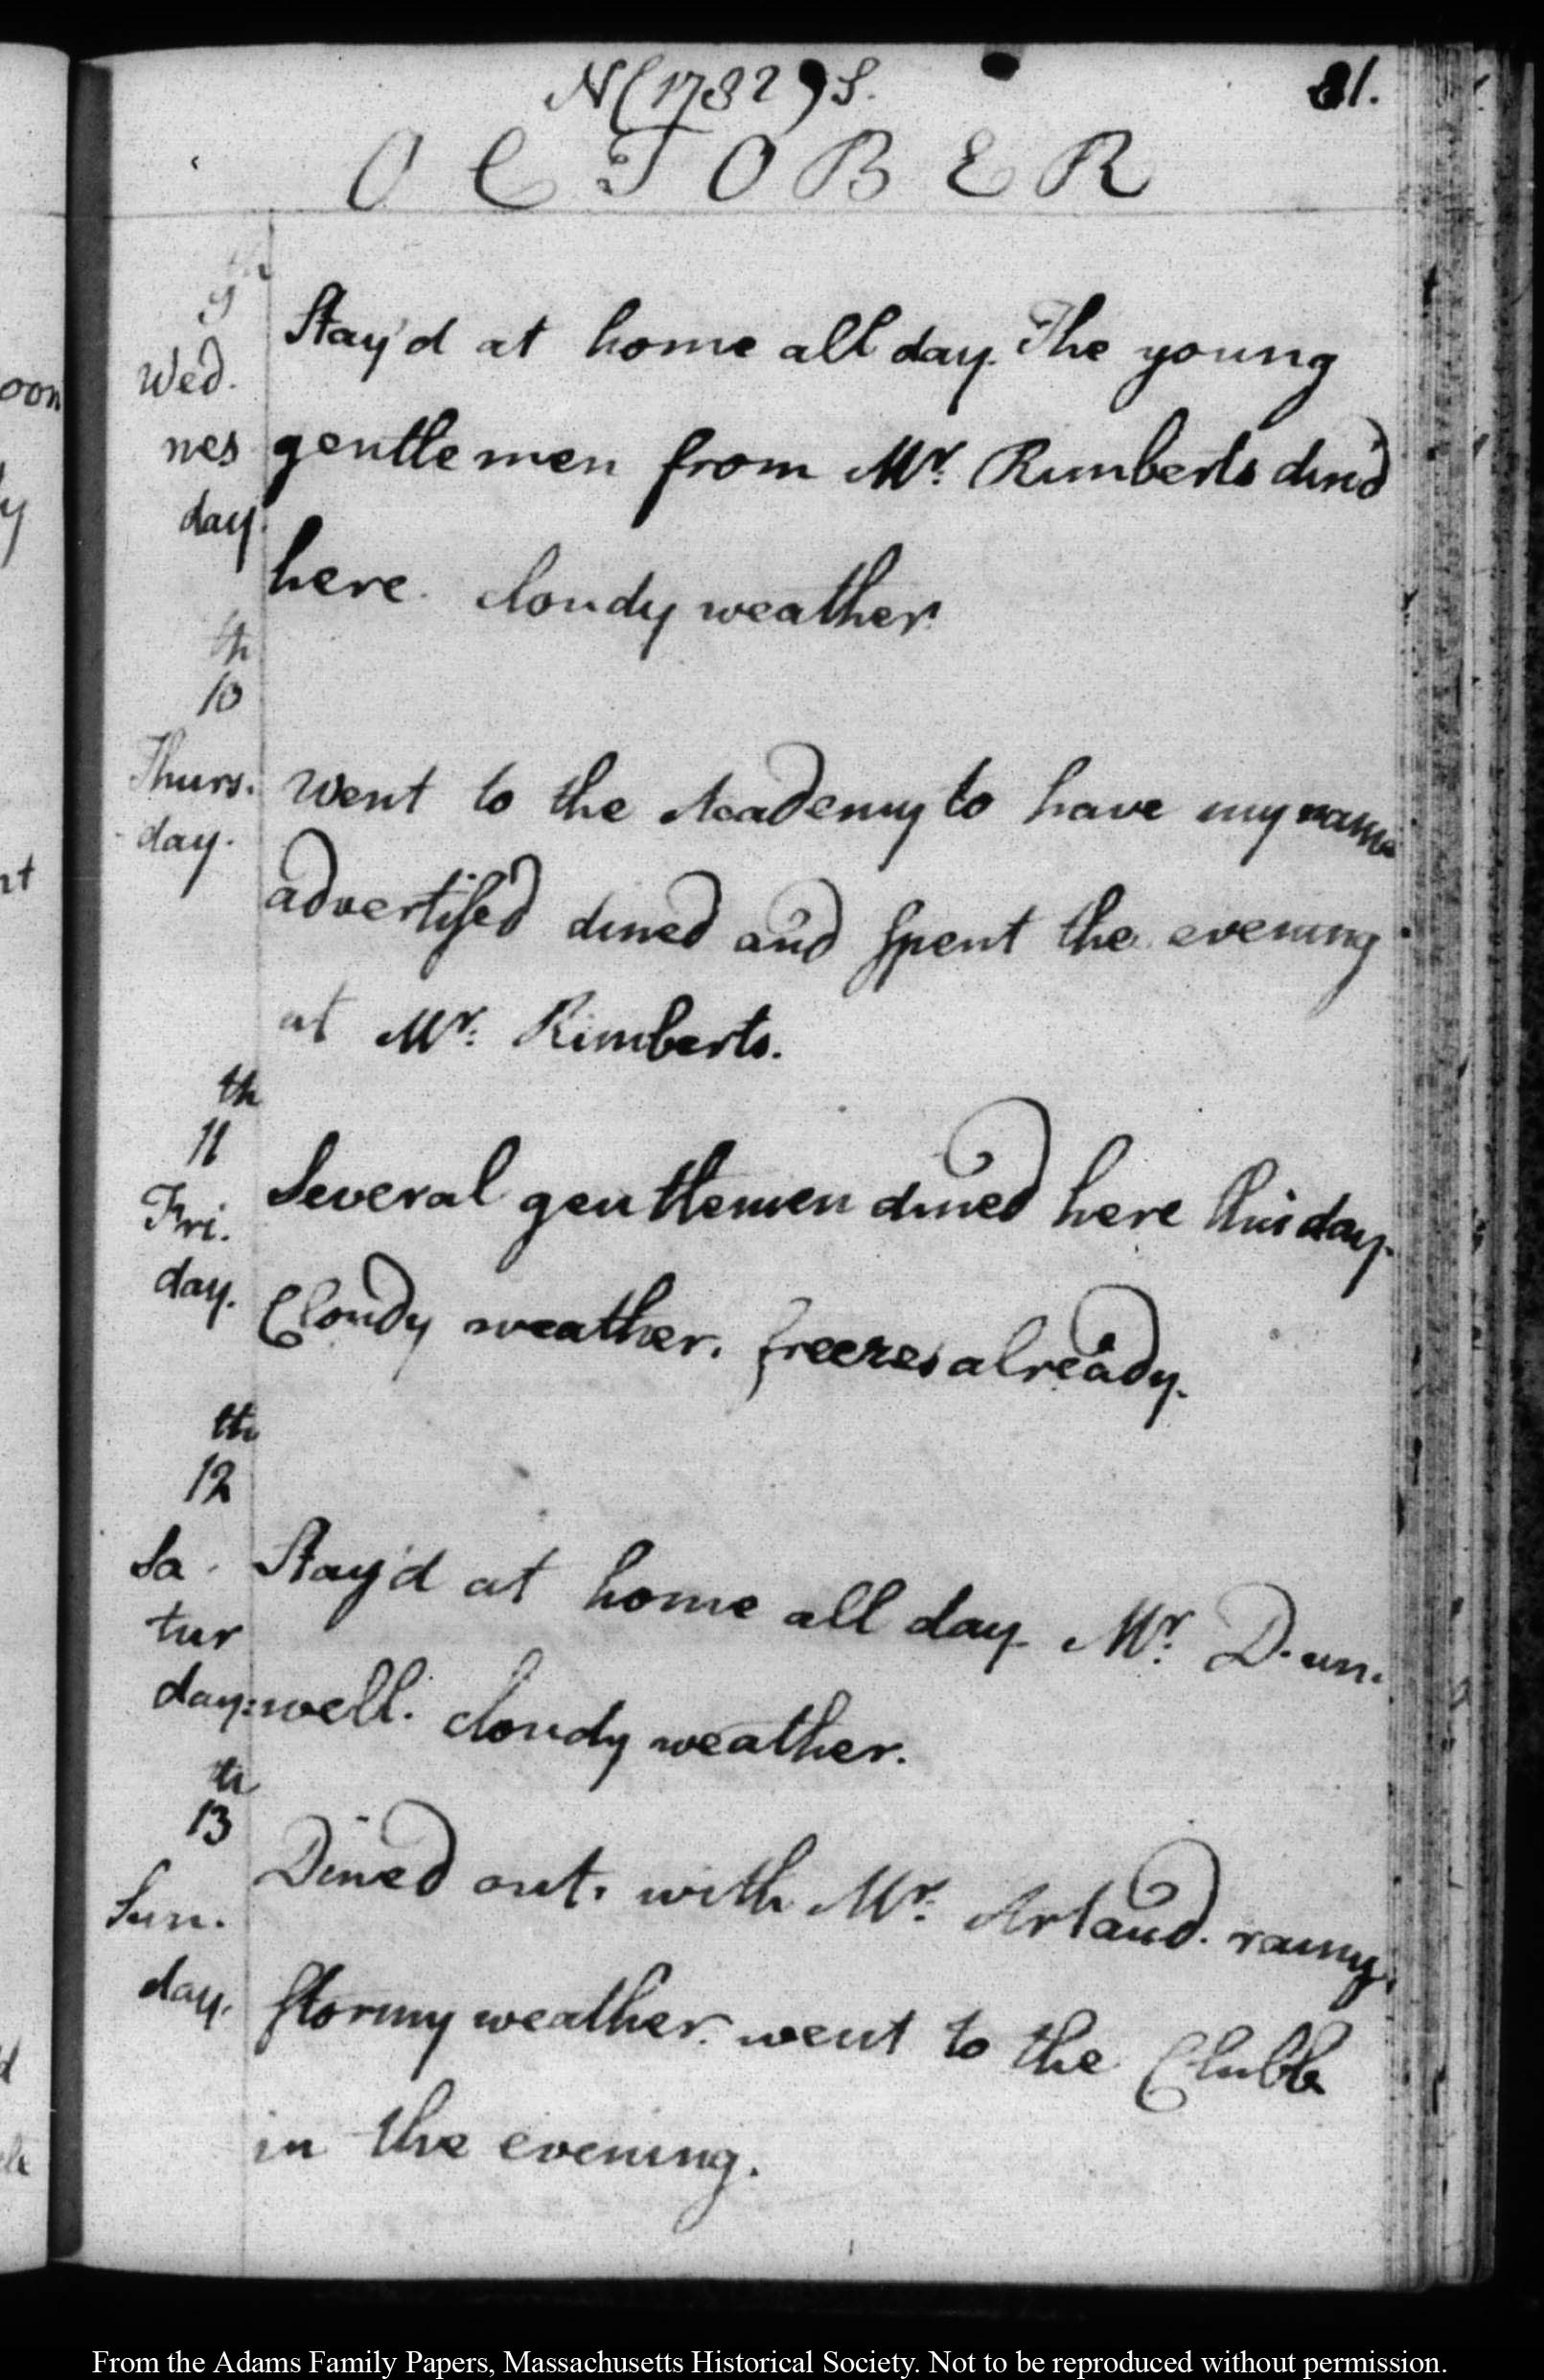 N(1782)S. 81.
OCTOBER
th
9
Wed.
nes
day.
Stay'd at home all day. The young
gentlemen from Mr. Rimberts din'd
here. cloudy weather.
th
10
Thurs.
day.
Went to the Academy to have my name
advertised dined and spent the evening
at Mr. Rimberts.
th
11
Fri.
day.
Several gentlemen dined here this day.
Cloudy weather. freezes already.
th
12
Sa.
tur
day.
Stay'd at home all day. Mr. D. un.
well. cloudy weather.
th
13
Sun.
day.
Dined out. with Mr. Artaud. rainy,
stormy weather. went to the Clubb
in the evening.
oon
ly
nt
d
From the Adams Family Papers, Massachusetts Historical Society. Not to be reproduced without permission.